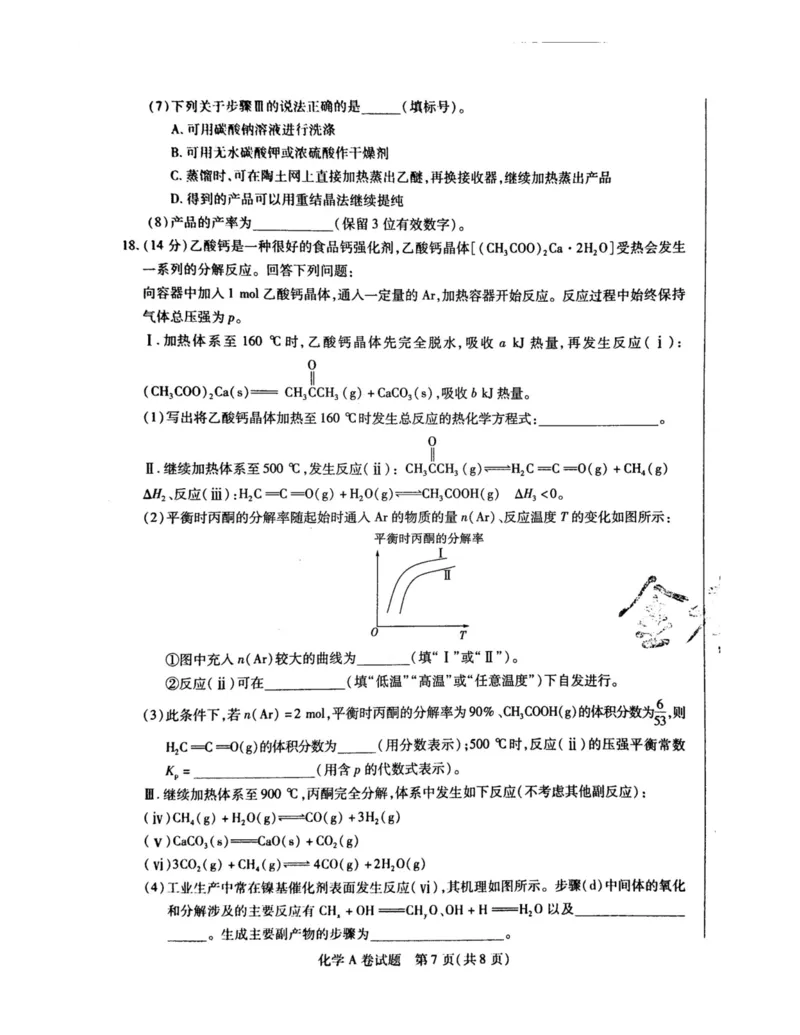 (7)下列关于步骤Ⅲ的说法正确的是_____(填标号)。
A. 可用碳酸钠溶液进行洗涤
B. 可用无水碳酸钾或浓硫酸作干燥剂
C. 蒸馏时、可在陶土网上直接加热蒸出乙醚,再换接收器,继续加热蒸出产品
D. 得到的产品可以用重结晶法继续提纯
(8)产品的产率为__________(保留3位有效数字)。
18. (14分)乙酸钙是一种很好的食品钙强化剂,乙酸钙晶体[(CH₃COO)₂Ca·2H₂O]受热会发生
一系列的分解反应。回答下列问题:
向容器中加入1 mol乙酸钙晶体,通入一定量的Ar,加热容器开始反应。反应过程中始终保持
气体总压强为p。
Ⅰ.加热体系至160 ℃时,乙酸钙晶体先完全脱水,吸收a kJ热量,再发生反应(ⅰ):
O
‖
(CH₃COO)₂Ca(s)══ CH₃CCH₃(g)+CaCO₃(s),吸收b kJ热量。
(1)写出将乙酸钙晶体加热至160 ℃时发生总反应的热化学方程式:_______________。
O
‖
Ⅱ.继续加热体系至500 ℃,发生反应(ⅱ): CH₃CCH₃(g)⇌H₂C═C═O(g)+CH₄(g)
ΔH₂、反应(ⅲ):H₂C═C═O(g)+H₂O(g)⇌CH₃COOH(g) ΔH₃<0。
(2)平衡时丙酮的分解率随起始时通入Ar的物质的量n(Ar)、反应温度T的变化如图所示:
平衡时丙酮的分解率
Ⅰ
Ⅱ
O T
①图中充入n(Ar)较大的曲线为_______(填“Ⅰ”或“Ⅱ”)。
②反应(ⅱ)可在__________(填“低温”“高温”或“任意温度”)下自发进行。
(3)此条件下,若n(Ar)=2 mol,平衡时丙酮的分解率为90%、CH₃COOH(g)的体积分数为6/53,则
H₂C═C═O(g)的体积分数为_____(用分数表示);500 ℃时,反应(ⅱ)的压强平衡常数
Kₚ=_______________(用含p的代数式表示)。
Ⅲ.继续加热体系至900 ℃,丙酮完全分解,体系中发生如下反应(不考虑其他副反应):
(ⅳ)CH₄(g)+H₂O(g)⇌CO(g)+3H₂(g)
(ⅴ)CaCO₃(s)══CaO(s)+CO₂(g)
(ⅵ)3CO₂(g)+CH₄(g)⇌4CO(g)+2H₂O(g)
(4)工业生产中常在镍基催化剂表面发生反应(ⅵ),其机理如图所示。步骤(d)中间体的氧化
和分解涉及的主要反应有CHₓ+OH══CHᵧO、OH+H══H₂O以及______________
_____。生成主要副产物的步骤为_________________。
化学A卷试题 第7页(共8页)